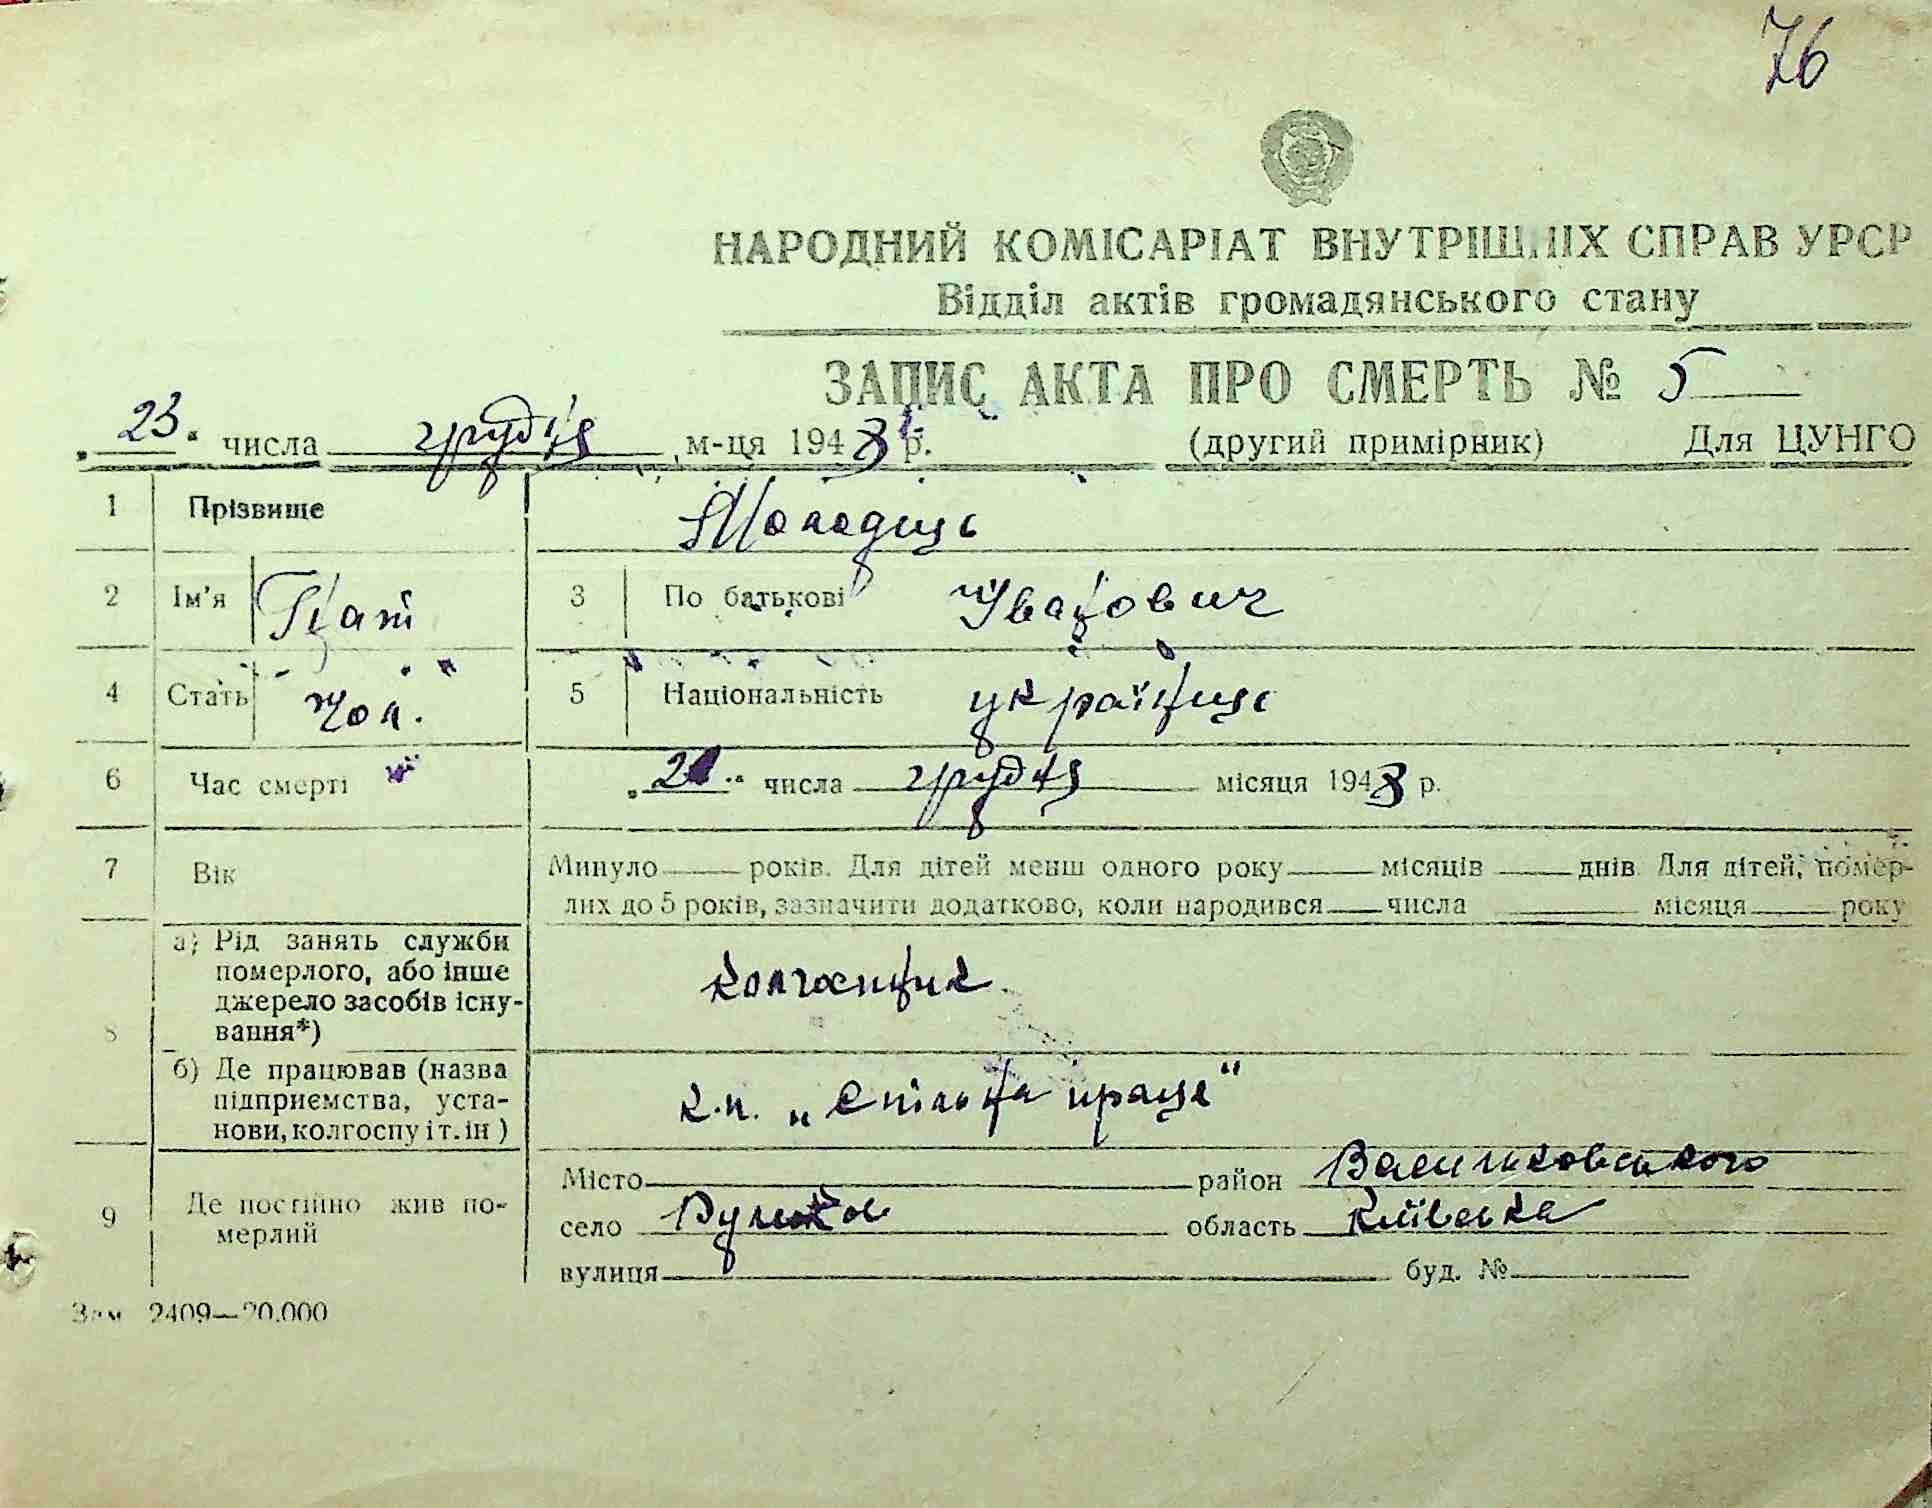 76
НАРОДНИЙ КОМІСАРІАТ ВНУТРІШНІХ СПРАВ УРСР
Відділ актів громадянського стану
ЗАПИС АКТА ПРО СМЕРТЬ № 5
„23“ числа грудня м-ця 1943 р. (другий примірник) Для ЦУНГО
1 Прізвище Молодець
2 Ім'я Гнат 3 По батькові Іванович
4 Стать Чол. 5 Національність українець
6 Час смерті „21“ числа грудня місяця 1943 р.
7 Вік Минуло років. Для дітей менш одного року місяців днів. Для дітей, помер-
лих до 5 років, зазначити додатково, коли народився числа місяця року
8 а) Рід занять служби
померлого, або інше
джерело засобів існу-
вання*) колгоспник
б) Де працював (назва
підприємства, уста-
нови, колгоспу і т. ін ) к.п. „Спільна праця“
9 Де постійно жив по-
мерлий
Місто район Васильковського
село область Київська
вулиця буд. №
Зам 2409—20.000